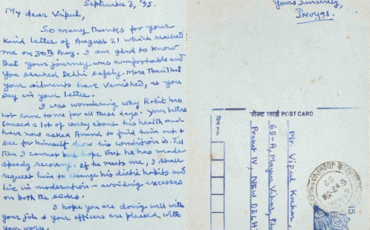 September 3, '95.
My dear Vipul,
So many thanks for your
kind letter of August 21 which reached
me on 30th Aug. I am glad to know
that your journey was comfortable and
you reached Delhi safely. More than that
your ailments have vanished, as you
say in your letter.
I was wondering why Rohit has
not come for all these days. Your letter
caused a lot of worry about his health and
have now asked Anand to find him out &
see for himself how his condition is. Till
then I cannot but hope that he has made
speedy recovery. If he meets me, I shall
request him to change his dietic habits and
live in moderation - avoiding excesses
on both the sides.
I hope you are doing well with
your job & your officers are pleased with
your work.
Yours Sincerely,
POST CARD
Mr. Vipul
Mayur Vihar, Ph
NEW DELH
15